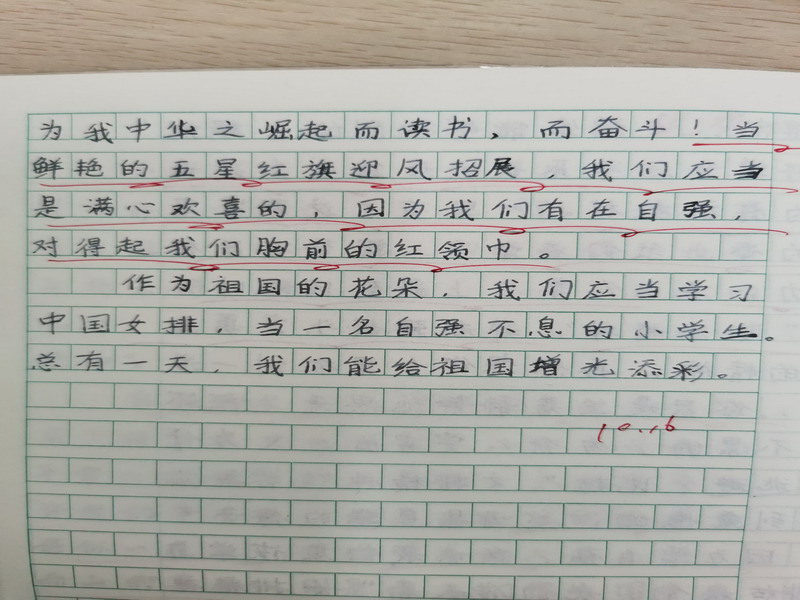 为我中华之崛起而读书，而奋斗！当
鲜艳的五星红旗迎风招展，我们应当
是满心欢喜的，因为我们有在自强，
对得起我们胸前的红领巾。
作为祖国的花朵，我们应当学习
中国女排，当一名自强不息的小学生。
总有一天，我们能给祖国增光添彩。
10.16